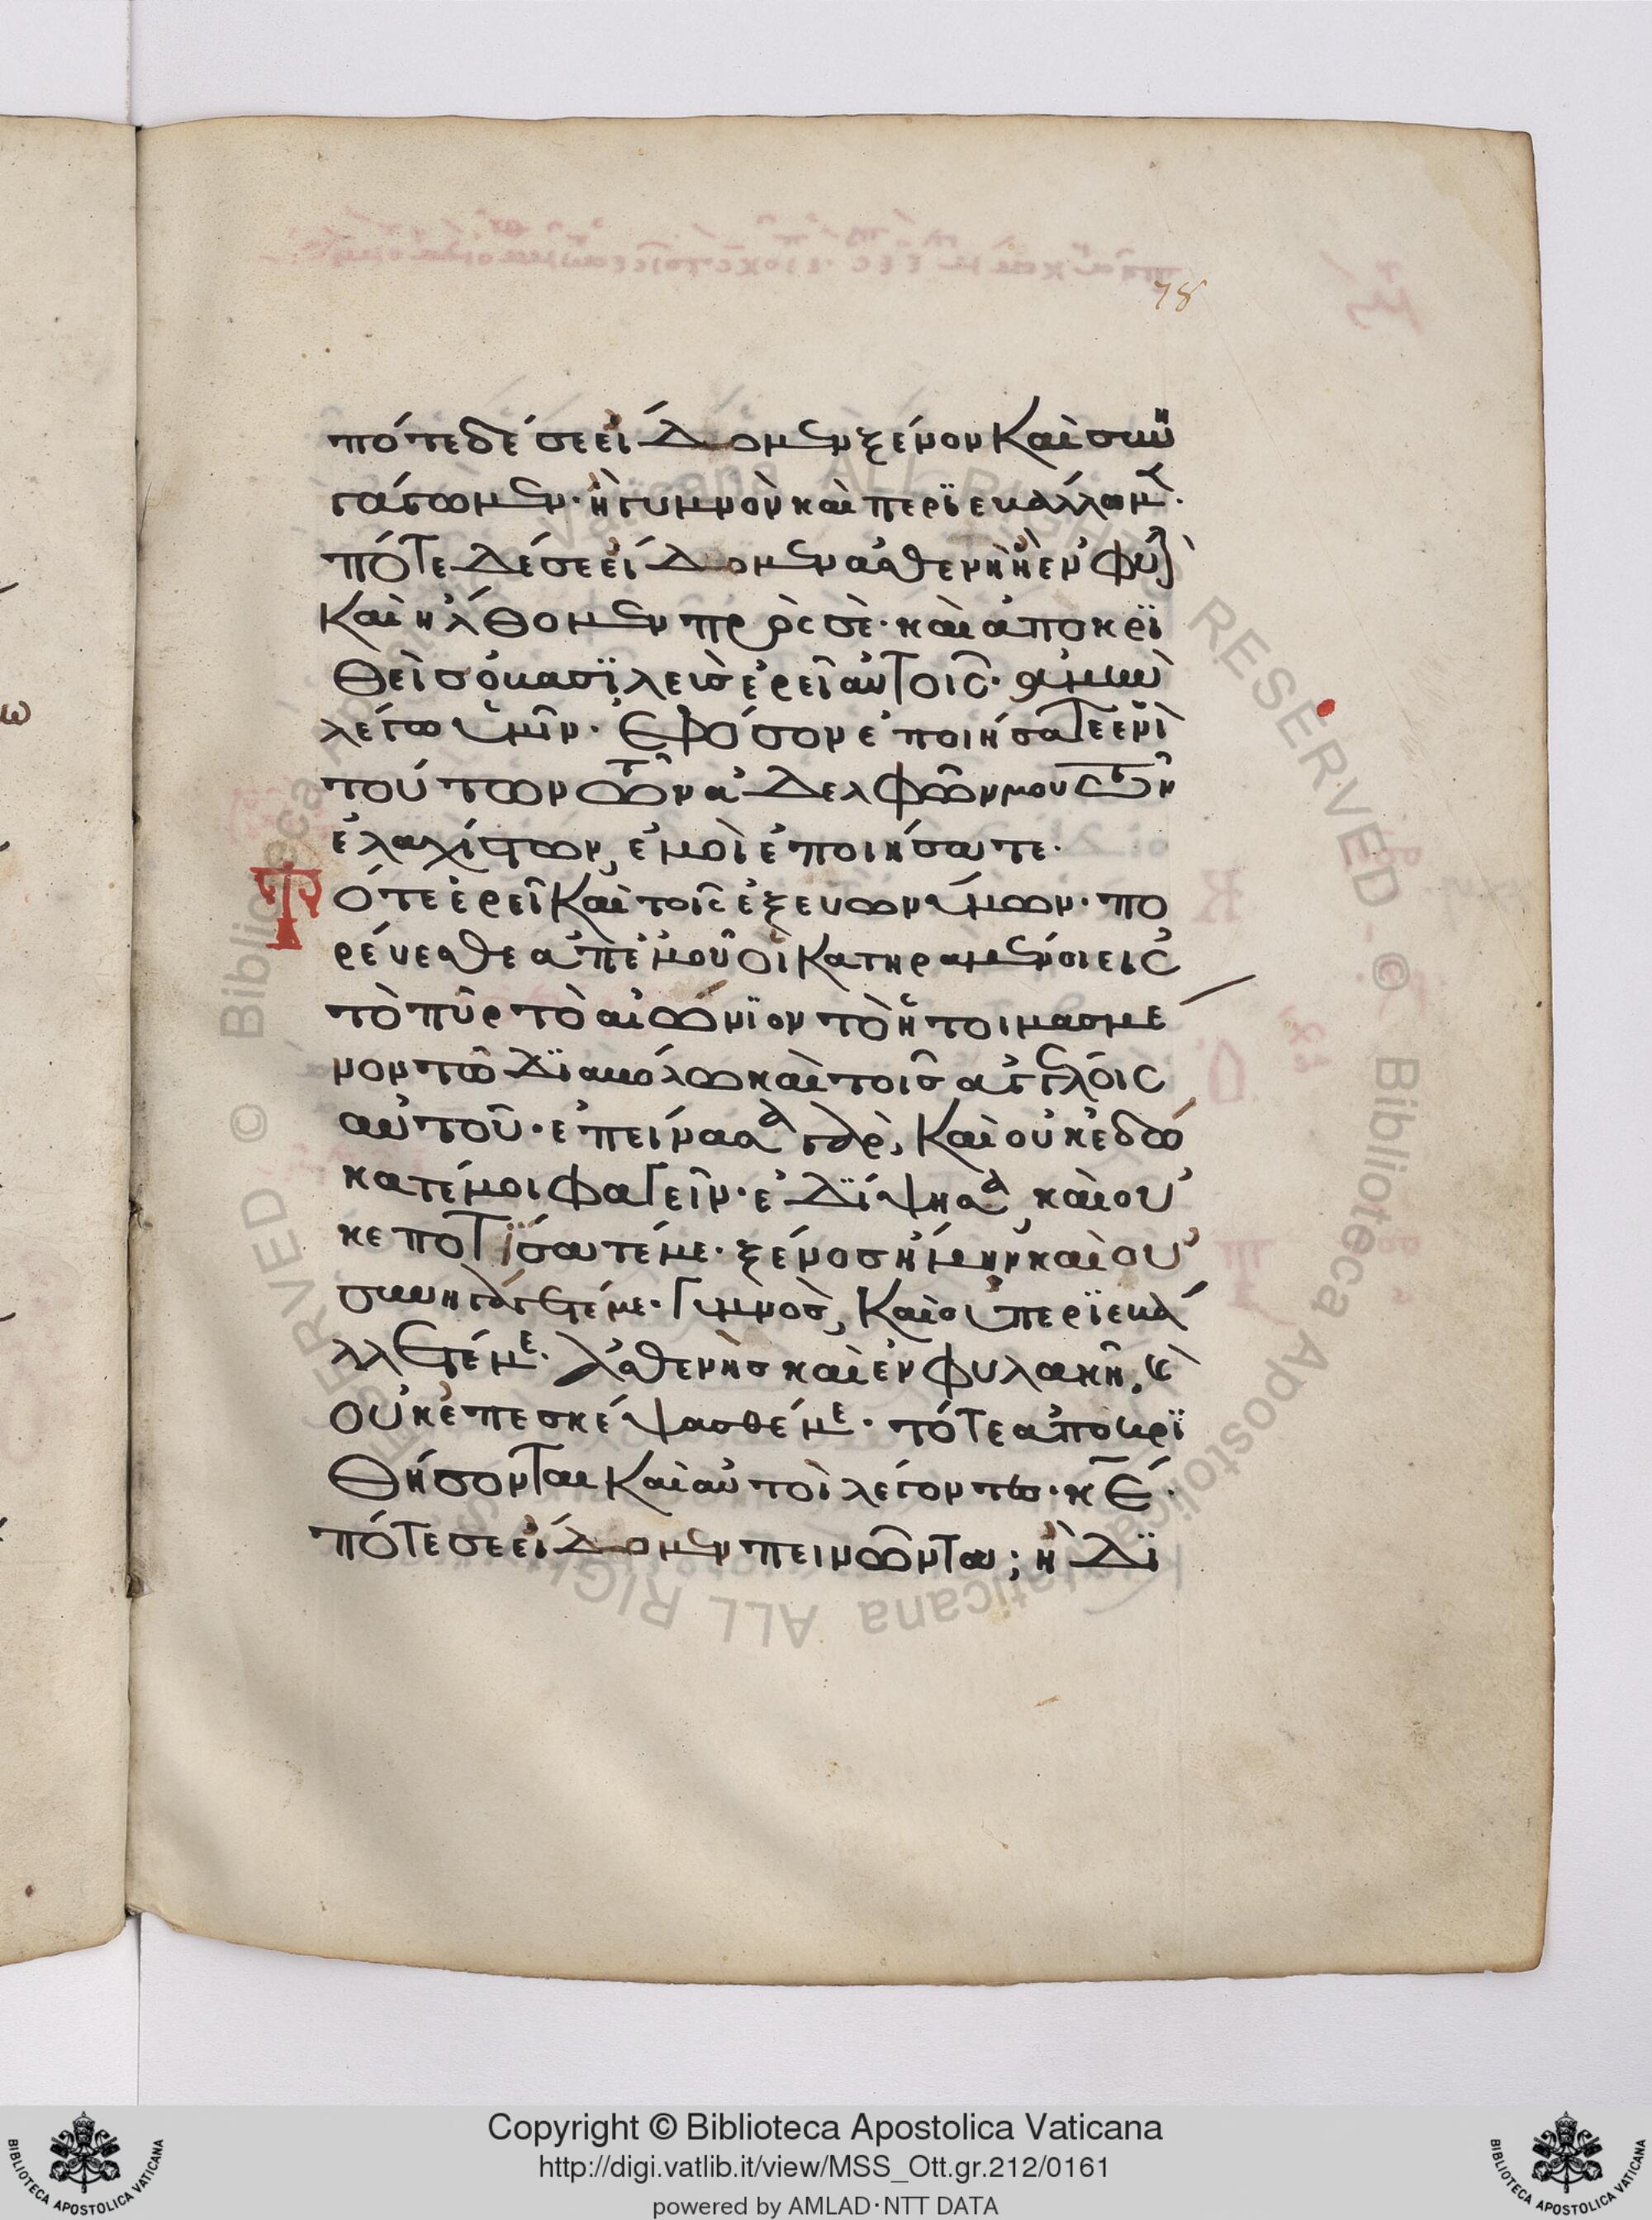 78
πότε δέ σε εἴδομεν ξένον καὶ συνη
γάγωμεν· ἢ γυμνὸν καὶ περϊεβάλλωμεν·
πότε δέ σε εἴδομεν ἀσθενῆ ἢ ἐν φυλ
καὶ ἤλθομεν πρὸς σὲ· καὶ ἀποκρϊ
θεὶς ὁ βασϊλεὺς ἐρεῖ αὐτοῖς· ἀμὴν
λέγω ὑμῖν· ἐφόσον ἐποιήσατε ἑνὶ
τούτων τῶν ἀδελφῶν μου τῶν
ἐλαχίστων, ἐμοὶ ἐποιήσατε·
Τότε ἐρεῖ καὶ τοῖς ἐξ εὐωνύμων· πο
ρέυεσθε ἀπ' ἐμοῦ οἱ κατηραμένοι εἰς
τὸ πῦρ τὸ αἰώνϊον τὸ ἡτοιμασμέ
νον τῶ δϊαβόλω καὶ τοῖς ἀγγέλοις
αὐτοῦ· ἐπείνασα γὰρ, καὶ οὐκ ἐδώ
κατέ μοι φαγεῖν· ἐδϊψησα, καὶ οὐ
κ ἐποτϊσατέ με· ξένος ἤμην, καὶ οὐ
συνηγάγετέ με· γυμνὸς, καὶ οὐ περϊεβά
λλετέ με· ἀσθενὴς καὶ ἐν φυλακῆ, καὶ
οὐκ ἐπεσκέψασθέ με· τότε ἀποκρϊ
θήσονται καὶ αὐτοὶ λέγοντες· κε·
πότε σε εἴδομεν πεινῶντα; ἢ δϊ
Copyright © Biblioteca Apostolica Vaticana
http://digi.vatlib.it/view/MSS_Ott.gr.212/0161
powered by AMLAD·NTT DATA